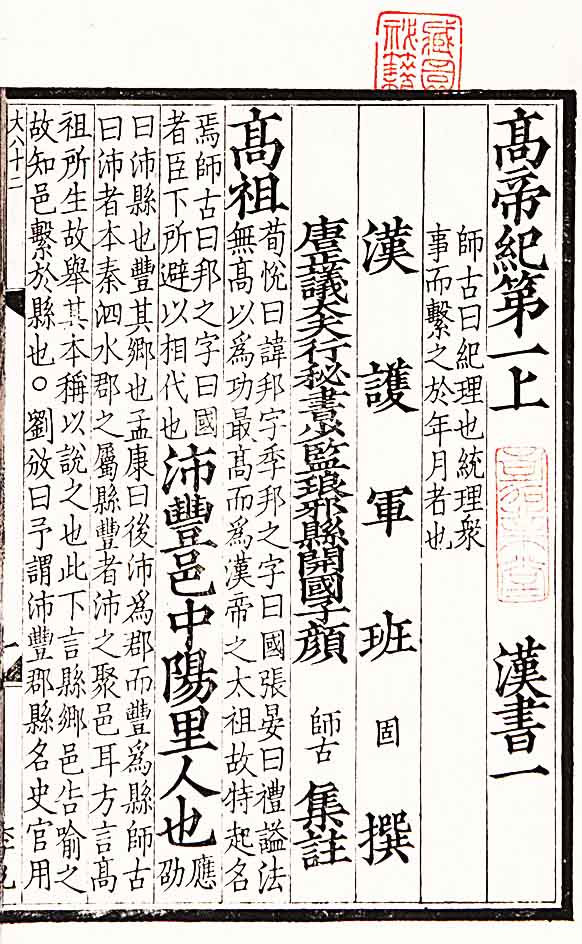 藏園秘籍
高帝紀第一上　漢書一
師古曰紀理也統理衆
事而繫之於年月者也
漢護軍班固撰
唐正議大夫行秘書少監琅邪縣開國子顔師古集註
髙祖
荀悅曰諱邦字季邦之字曰國張晏曰禮謚法
無髙以爲功最髙而爲漢帝之太祖故特起名
焉師古曰邦之字曰國
者臣下所避以相代也
沛豐邑中陽里人也
應
劭
曰沛縣也豐其鄉也孟康曰後沛爲郡而豐爲縣師古
曰沛者本秦泗水郡之屬縣豐者沛之聚邑耳方言髙
祖所生故舉其本稱以說之也此下言縣鄉邑告喻之
故知邑繫於縣也○劉攽曰予謂沛豐郡縣名史官用
大八十二